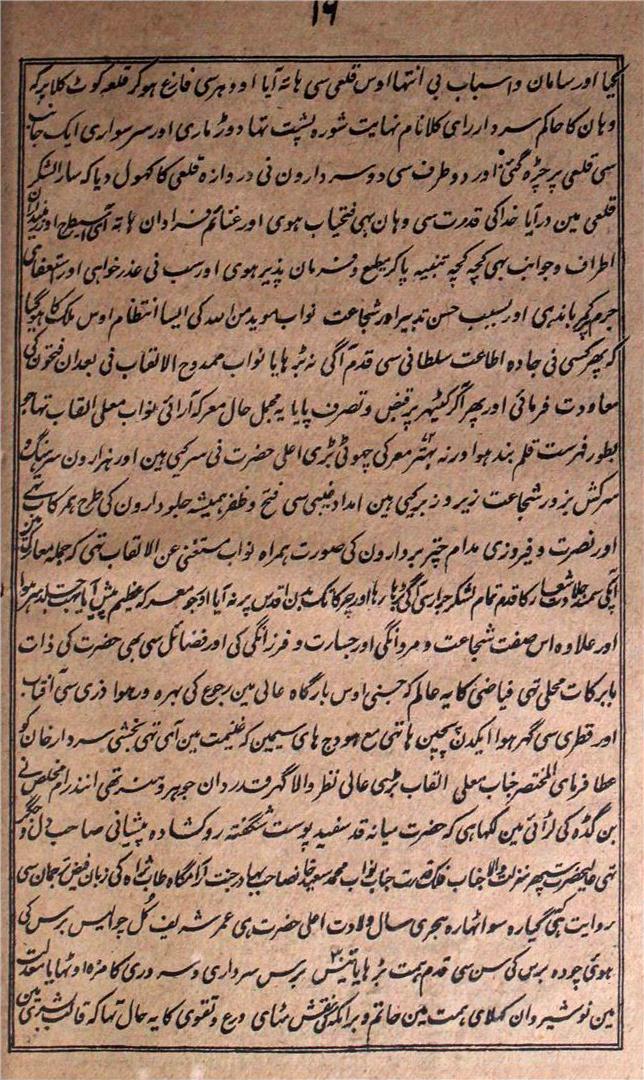 ۱۶
کیا اور سامان و اسباب بی انتہا اوس قلعی سی ہاتہ آیا اودہرسی فارغ ہوکر قلعہ کوٹ کلا پر کہ
وہان کا حاکم سردار رای کلا نام نہایت شورہ پشت تہا دوڑ ماری اور سر سواری ایک جانب
سی قلعی پر چڑہ گئی اور دو طرف سی دو سردارون نی دروازہ قلعی کا کہول دیا کہ سارا لشکر
قلعی مین در آیا خدا کی قدرت سی وہان بہی فتحیاب ہوی اور غنائم فراوان ہاتہ آی اسیطرح اور زمینداران
اطراف و جوانب بہی کچہ کچہ تنبیہ پاکر مطیع و فرمان پذیر ہوی اور سب نی عذر خواہی اور استعفای
جرم پر کمر باندہی اور بسبب حسن تدبیر اور شجاعت نواب موید من اللہ کی ایسا انتظام اوس ملک کا ہوگیا
کہ پہر کسی نی جادہ اطاعت سلطانی سی قدم آگی نہ بڑہایا نواب ممدوح الالقاب نی بعد ان فتحون کی
معاودت فرمائی اور پہر آکر کٹیہر پر قبض و تصرف پایا یہ مجمل حال معرکہ آرائی نواب معلی القاب تہا جو
بطور فہرست قلم بند ہوا ورنہ بہتر معرکی چہوٹی بڑی اعلی حضرت نی سر کیی ہین اور ہزارون سرہنگ
سرکش بزور شجاعت زیر و زبر کیی ہین امداد غیبی سی فتح و ظفر ہمیشہ جلودارون کی طرح ہمرکاب تہی
اور نصرت و فیروزی مدام چتر بردارون کی صورت ہمراہ نواب مستغنی عن الالقاب تہی کہ جملہ معارک مین
آپکی سمند جلادت شعار کا قدم تمام لشکر جرار سی آگی بڑہا رہا اور چرکا تک بدن اقدس پر نہ آیا اور جو معرکہ عظیم پیش آیا بہت جلد سر ہوا
اور علاوہ اس صفت شجاعت و مردانگی اور جسارت و فرزانگی کی اور فضائل سی بہی حضرت کی ذات
بابرکات محلی تہی فیاضی کا یہ عالم کہ جسنی اوس بارگاہ عالی مین رجوع کی بہرہ ور ہوا ذری سی آفتاب
اور قطری سی گہر ہوا ایکدن پچپن ہاتہی مع ہودج ہای سیمین کہ غنیمت مین آی تہی بخشی سردار خان کو
عطا فرمای المختصر جناب معلی القاب بڑی عالی نظر والا گہر قدردان جوہر و ہنر تہی انندرام مخلص نی
بن گڈہ کی لڑائی مین لکہا ہی کہ حضرت میانہ قد سفید پوست شگفتہ رو کشادہ پیشانی صاحب دل و جگر
تہی عالیحضرت سپہر منزلت والا جناب فلک قدرت جناب نواب محمد سعید خانصاحب بہادر جنت آرامگاہ طاب ثراہ کی زبان فیض ترجمان سی
روایت ہی کہ گیارہ سو اٹہارہ ہجری سال ولادت اعلی حضرت ہی عمر شریف کل چوالیس برس کی
ہوئی چودہ برس کی سن سی قدم ہمت بڑہایا تیس ۳۰ برس سرداری و سروری کا مزہ اوٹہایا عدالت
مین نوشیروان کہلای ہمت مین حاتم و برامکہ کی نقش مٹای ورع و تقوی کا یہ حال تہا کہ قالب بشری مین